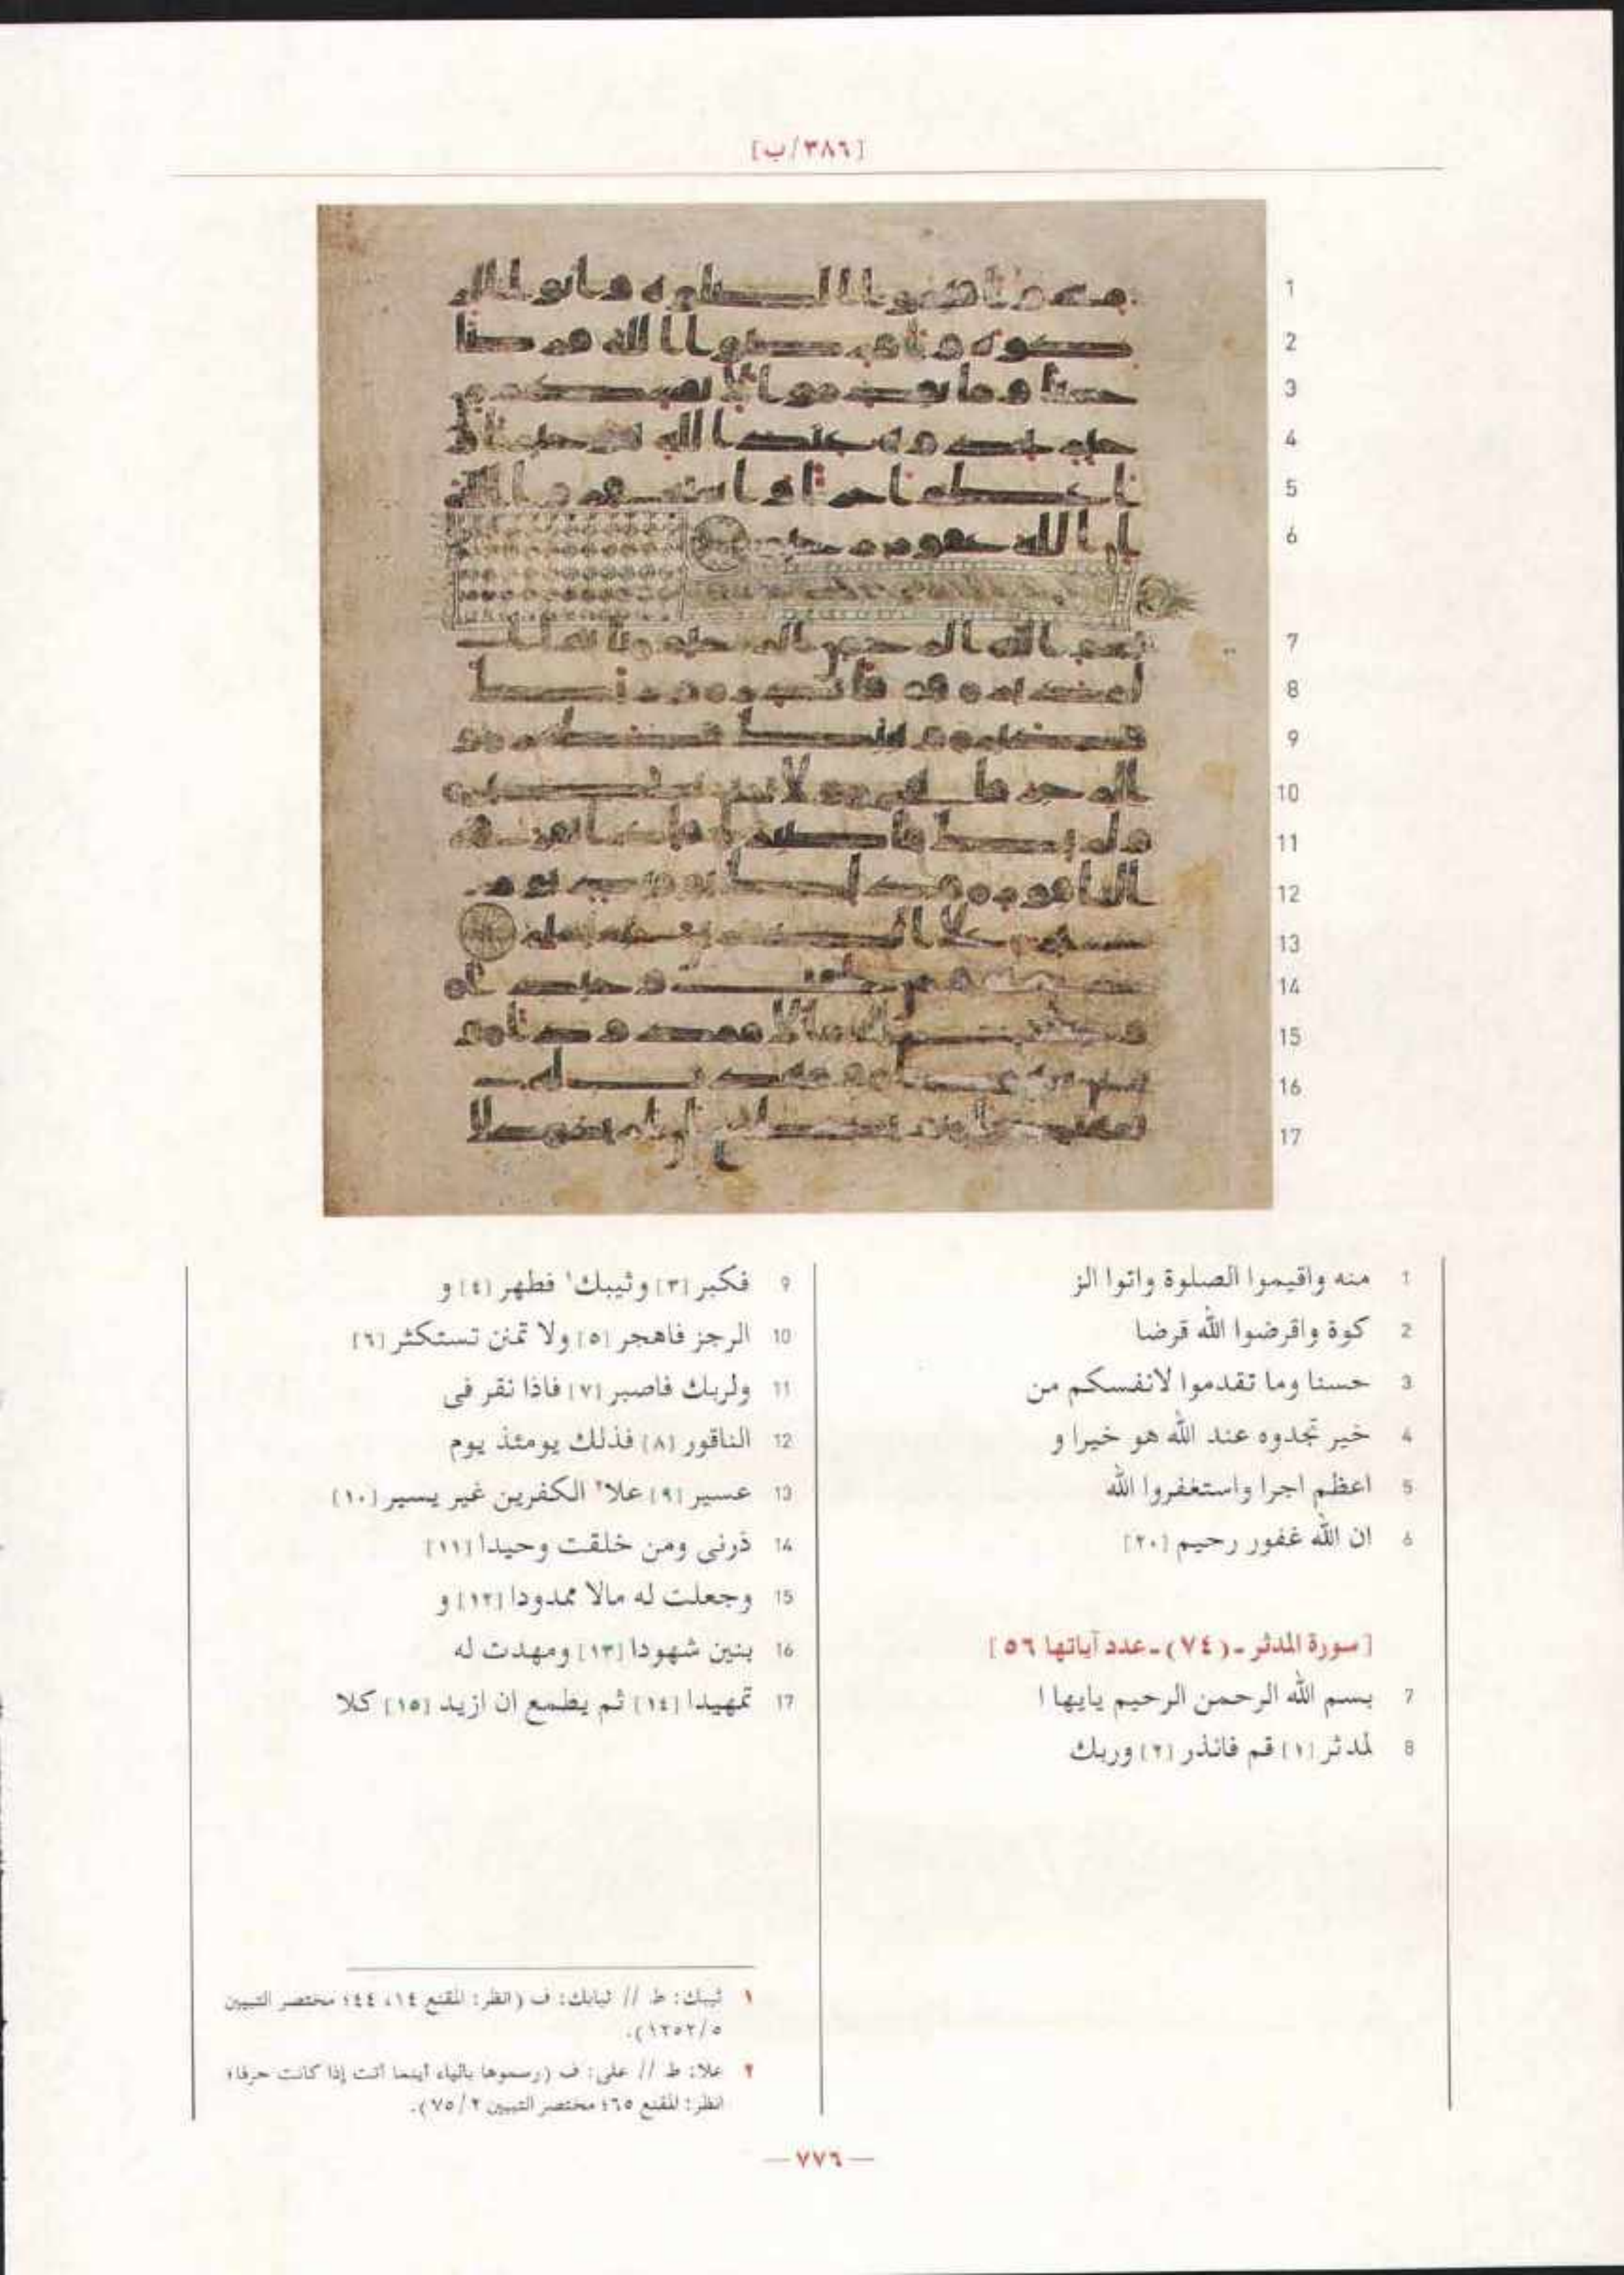 [٣٨٦/ب]
1 منه واقيموا الصلوة واتوا الز
2 كوة واقرضوا الله قرضا
3 حسنا وما تقدموا لانفسكم من
4 خير تجدوه عند الله هو خيرا و
5 اعظم اجرا واستغفروا الله
6 ان الله غفور رحيم [٢٠]
[سورة المدثر ـ (٧٤) ـ عدد آياتها ٥٦]
7 بسم الله الرحمن الرحيم يايها ا
8 لمدثر [١] قم فانذر [٢] وربك
9 فكبر [٣] وثيبك١ فطهر [٤] و
10 الرجز فاهجر [٥] ولا تمنن تستكثر [٦]
11 ولربك فاصبر [٧] فاذا نقر فى
12 الناقور [٨] فذلك يومئذ يوم
13 عسير [٩] علا٢ الكفرين غير يسير [١٠]
14 ذرنى ومن خلقت وحيدا [١١]
15 وجعلت له مالا ممدودا [١٢] و
16 بنين شهودا [١٣] ومهدت له
17 تمهيدا [١٤] ثم يطمع ان ازيد [١٥] كلا
١ ثيبك: ط // ثيابك: ف (انظر: المقنع ١٤، ٤٤؛ مختصر التبيين
١٢٥٢/٥).
٢ علا: ط // على: ف (رسموها بالياء أينما أتت إذا كانت حرفا؛
انظر: المقنع ٦٥؛ مختصر التبيين ٧٥/٢).
— ٧٧٦ —